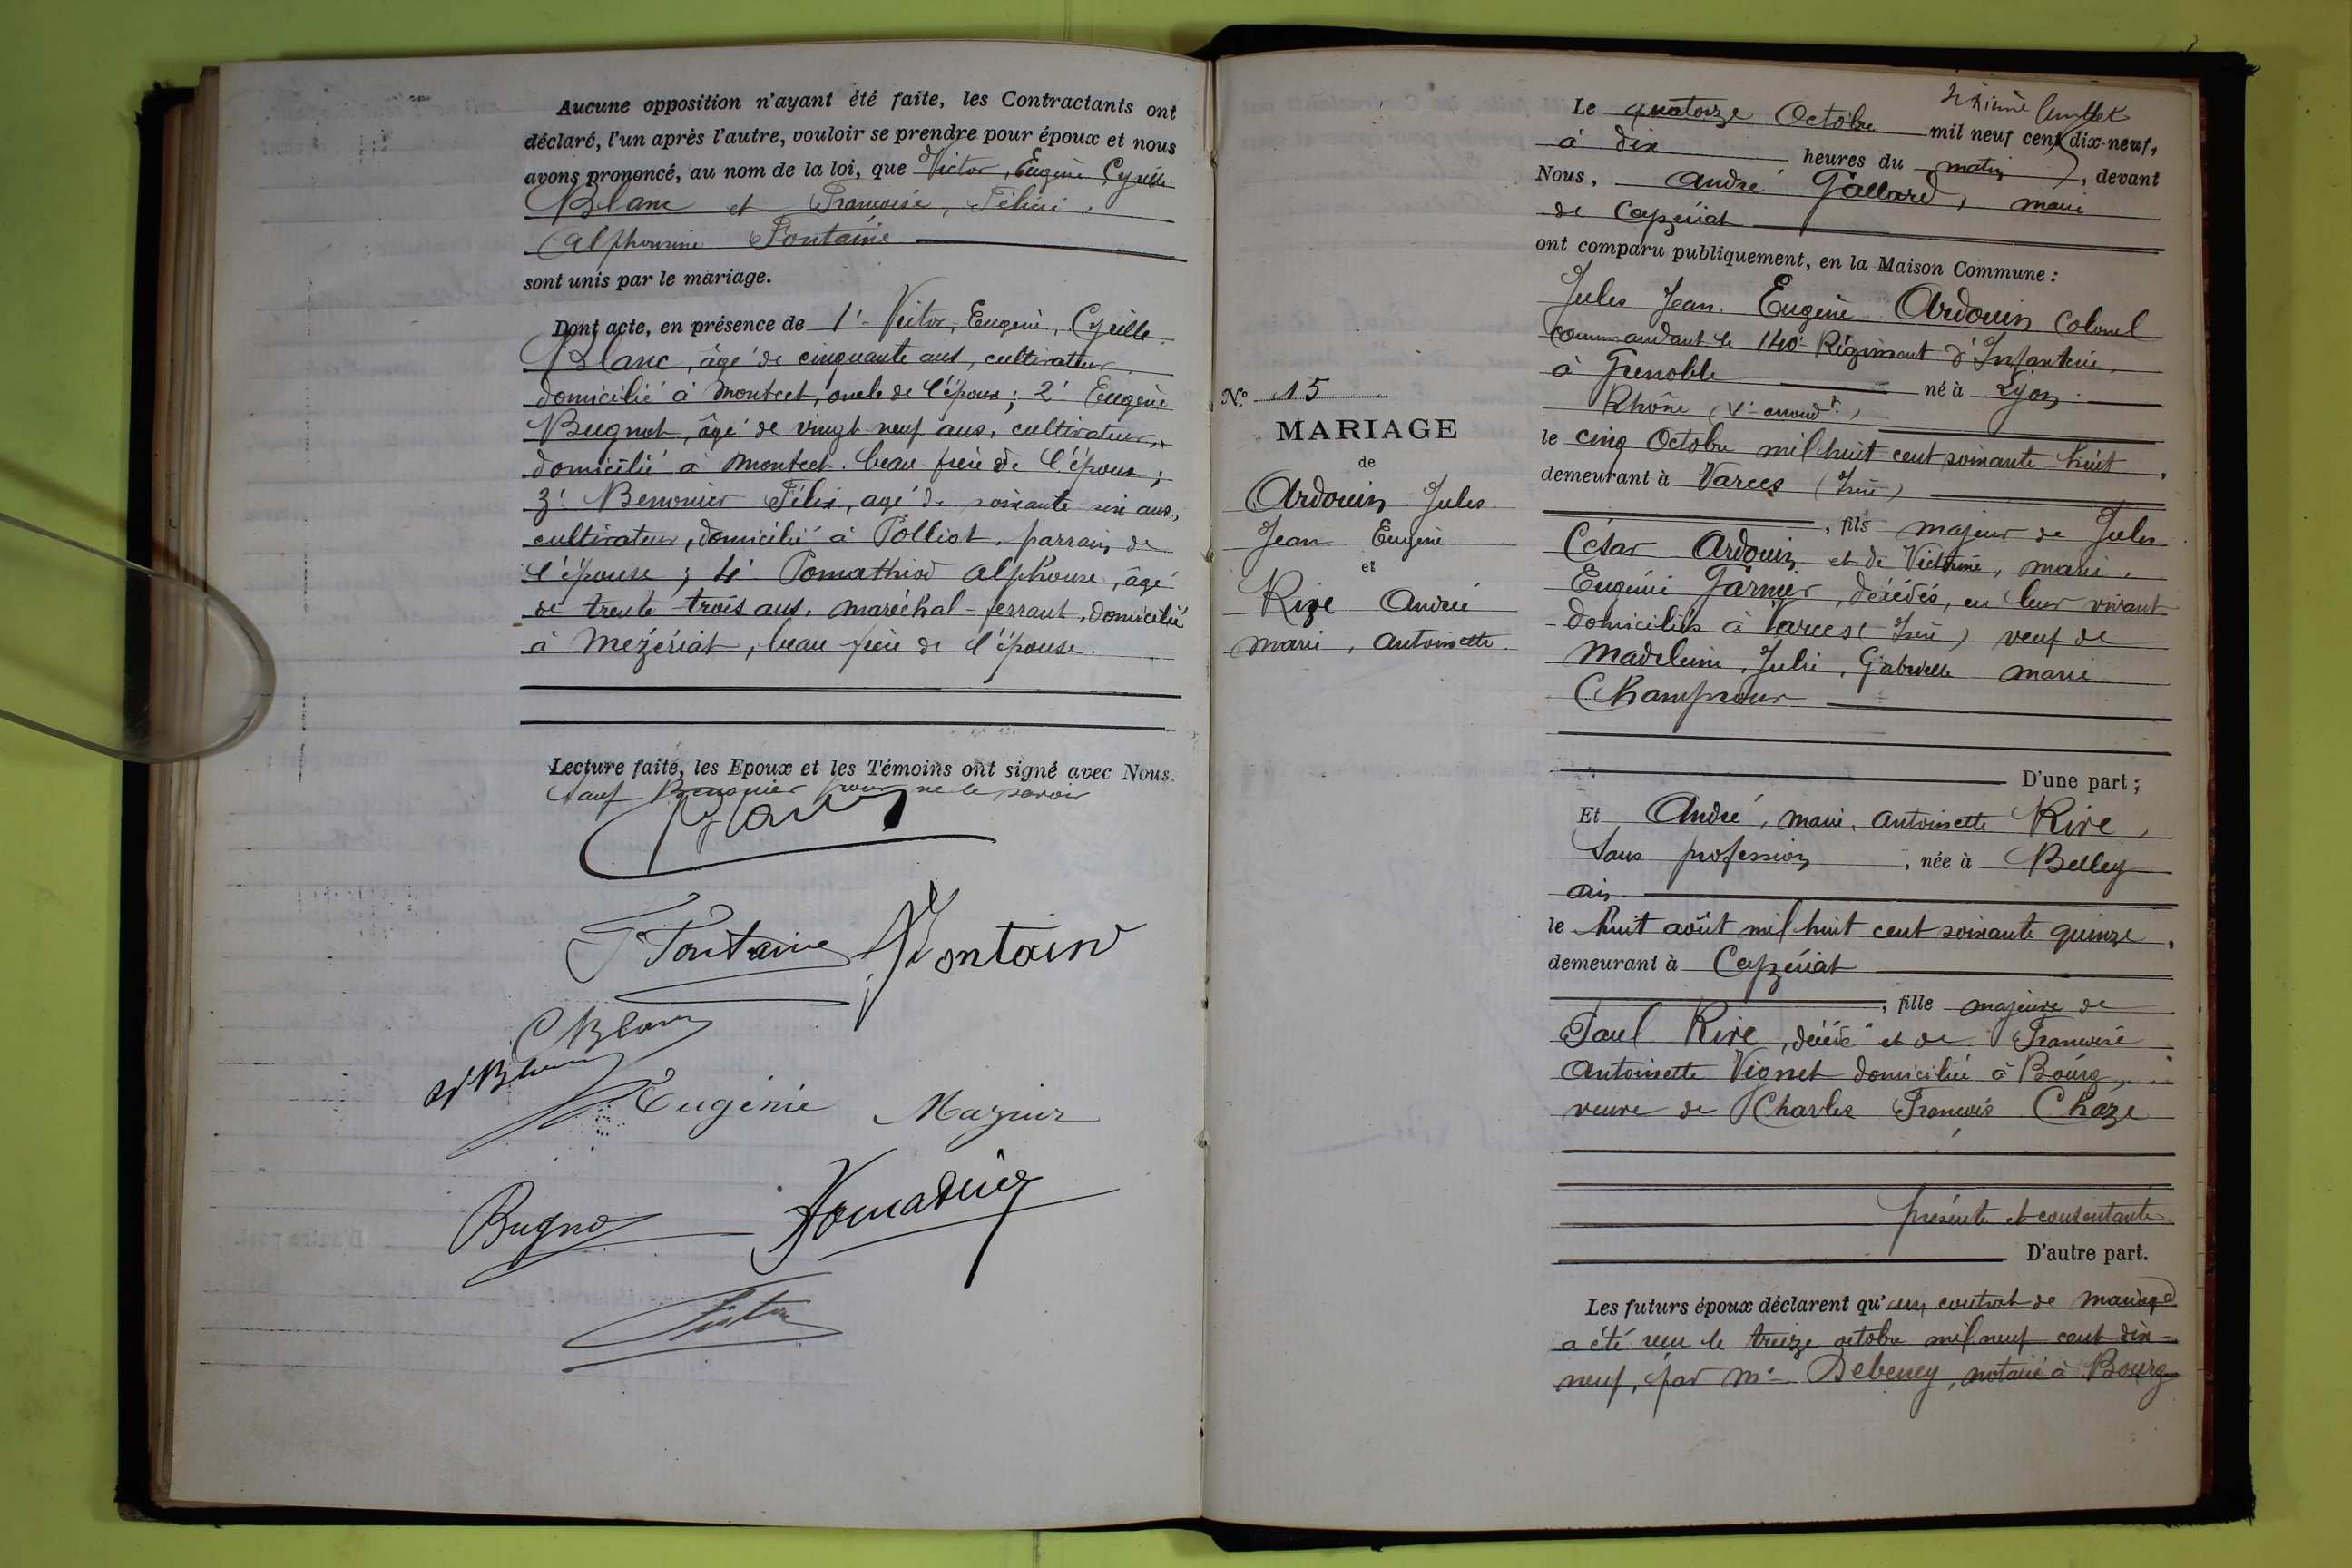 Aucune opposition n'ayant été faite, les Contractants ont
déclaré, l'un après l'autre, vouloir se prendre pour époux et nous
avons prononcé, au nom de la loi, que Victor, Eugène Cyrille
Blanc et Françoise, Félicie,
Alphonsine Fontaine
sont unis par le mariage.
Dont acte, en présence de 1° Victor, Eugène, Cyrille
Blanc, âgé de cinquante ans, cultivateur,
domicilié à Montcet, oncle de l'époux; 2° Eugène
Bugnot, âgé de vingt neuf ans, cultivateur,
domicilié à Montcet. beau frère de l'époux;
3° Benonier Félix, agé de soixante six ans,
cultivateur, domicilié à Polliat, parrain de
l'épouse; 4° Pomathiod Alphonse, âgé
de trente-trois ans, maréchal-ferrant, domicilié
à Mézériat, beau-frère de l'épouse.
Lecture faite, les Epoux et les Témoins ont signé avec Nous.
sauf Benonier pour ne le savoir
Blanc
F Fontaine Fontain
C Blanc
Blanc
Eugénie
Bugno
Le quatorze Octobre mil neuf cent dix-neuf,
à dix heures du matin, devant
Nous, André Gallard, maire
de Ceyzériat
ont comparu publiquement, en la Maison Commune :
Jules Jean Eugène Ardouin Colonel
commandant le 140e Régiment d'Infanterie,
à Grenoble né à Lyon
Rhône (V° arrondt.)
le cinq Octobre mil huit cent soixante-huit,
demeurant à Varces (Isère)
, fils majeur de Jules
César Ardouin et de Victorine, Marie,
Eugénie Garnier, décédés, en leur vivant
domiciliés à Varces (Isère) veuf de
Madeleine, Julie, Gabrielle Marie
D'une part ;
N° 15
MARIAGE
de
Ardouin Jules
Jean Eugène
et
Rive Andrée
Marie, Antoinette.
Et André, Marie, Antoinette Rive,
Sans profession, née à Belley
Ain
le huit août mil huit cent soixante quinze,
demeurant à Ceyzériat
, fille majeure de
Paul Rive, décédé et de Françoise
Antoinette Vignet domiciliée à Bourg,
veuve de Charles François Chaze
présente et consentante
D'autre part.
Les futurs époux déclarent qu'un contrat de mariage
a été reçu le treize octobre mil neuf cent dix-
neuf, par Me Debeney, notaire à Bourg